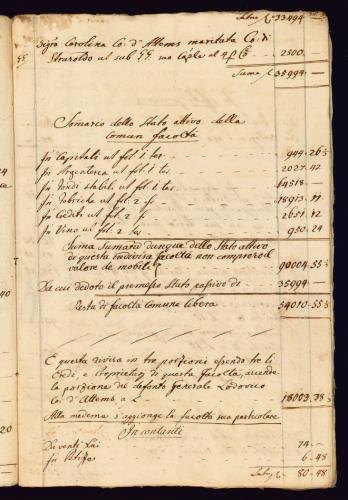 Latus f 33494
Sig.ra Carolina Co: d'Attems maritata Co: di
Straroldo ut sub §§. suo Cap.le al 4 p C.to 2500. —
Suma f 35994. —
Sumario dello Stato attivo della
Comun facoltà
In Capitali ut fol. 1 ter. 944. 26
In Argenteria ut fol. 1 ter. 2027. 42
In fondi stabili ut fol. 1 ter. 64518. —
In fabriche ut fol. 2 18913. 11
In Crediti ut fol. 2 2651. 12
In Vino ut fol. 2 ter 950. 24
Suma Sumario dunque dello Stato attivo
di questa indivisa facoltà non compreso il
valore de mobili f 90004. 55
Da cui dedoto il premesso Stato passivo de 35994 —
Resta di facoltà Comune libera 54010. 55
E questa divisa in tre porzioni essendo tre li
Eredi, e Proprietarj di questa facoltà, ascende
la porzione del defonto Generale Lodovico
Co: d'Attems a f 18003. 38
Alla medema s'aggionge la facoltà sua particolare
In contanti
74. —
In 6. 48
Latus f 80. 48